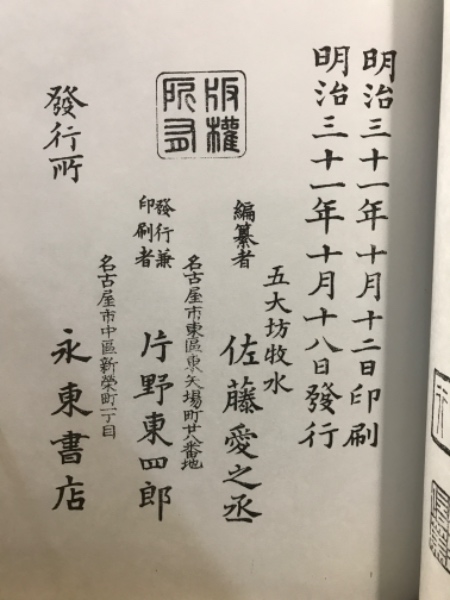 明治三十一年十月十二日印刷
明治三十一年十月十八日發行
五大坊牧水
編纂者 佐藤愛之丞
名古屋市東區東矢場町廿八番地
發行兼
印刷者 片野東四郎
名古屋市中區新榮町一丁目
發行所 永東書店
版權
所有